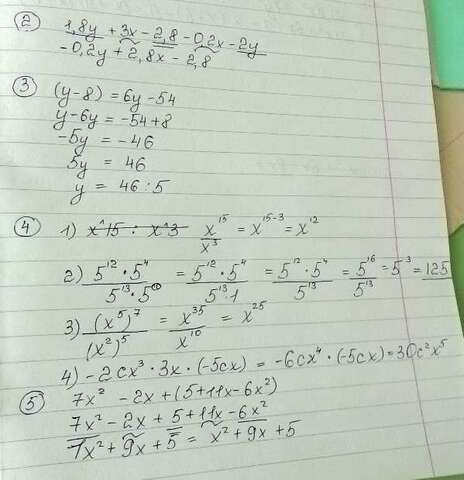 ② 1,8y + 3x - 2,8 - 0,2x - 2y
-0,2y + 2,8x - 2,8
③ (y-8) = 6y - 54
y - 6y = -54 + 8
-5y = -46
5y = 46
y = 46 : 5
④ 1) x^15 : x^3 x¹⁵/x³ = x¹⁵⁻³ = x¹²
2) 5¹²·5⁴/5¹³·5⁰ = 5¹²·5⁴/5¹³·1 = 5¹²·5⁴/5¹³ = 5¹⁶/5¹³ = 5³ = 125
3) (x⁵)⁷/(x²)⁵ = x³⁵/x¹⁰ = x²⁵
4) -2cx³ · 3x · (-5cx) = -6cx⁴ · (-5cx) = 30c²x⁵
⑤ 7x² - 2x + (5 + 11x - 6x²)
7x² - 2x + 5 + 11x - 6x²
1x² + 9x + 5 = x² + 9x + 5